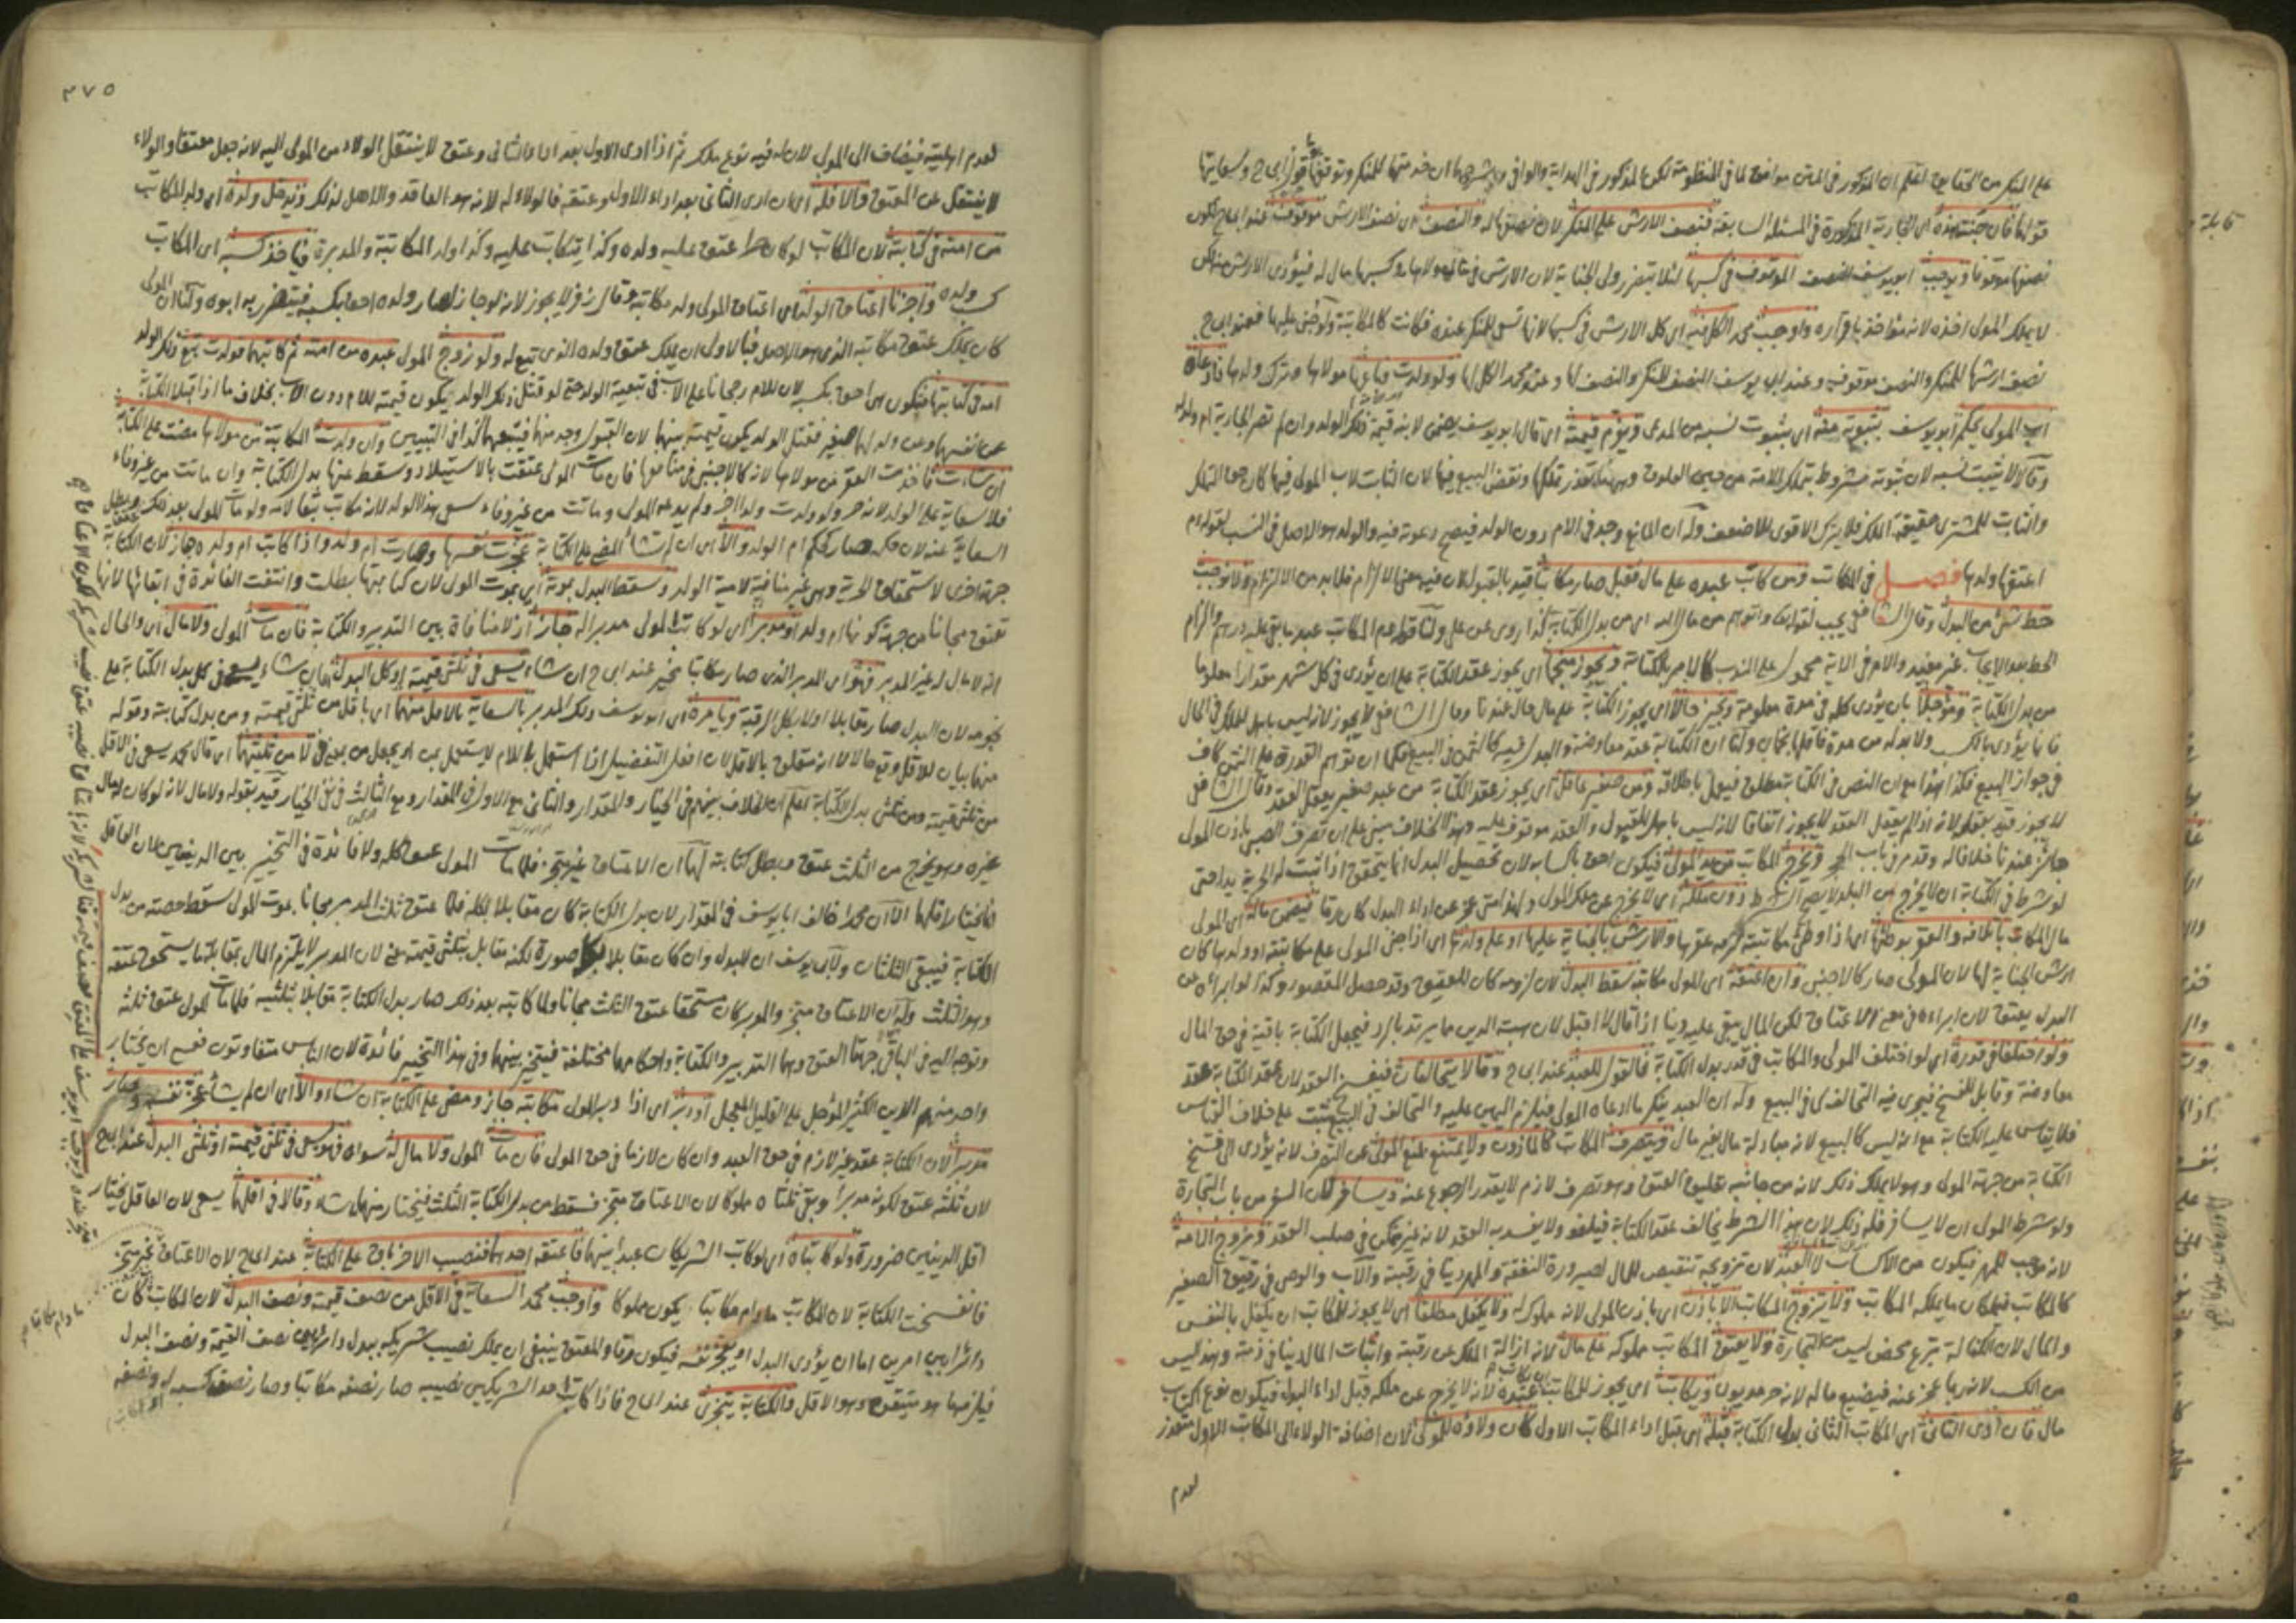 على المنكر من الحقايق اعلم ان المذكور في المتن موافق لما في المنظومة لكن المذكور في الهداية والوافي
قولها فان جنت هذه اى الجارية المذكورة في المسئلة السابقة فنصف الارش على المنكر لان نصفها له والنصف اى نصف الارش موقوف عند ابى ح لكون
نصفها موقوفا ويوجب ابو يوسف النصف الموقوف في كسبها لئلا يتضرر ولى الجناية لان الارش
لا يملك المولى اخذه لانه مؤاخذ باقراره واوجب محمد الكل فيه اى كل الارش في كسبها لانها تسعى للمنكر عنده فكانت كالمكاتبة ولو جنى عليها فعند ابى ح
نصف ارشها للمنكر والنصف موقوف وعند ابى يوسف النصف للمنكر والنصف لها وعند محمد الكل لها ولو ولدت مولاها وترك ولدها فادعاه
اب المولى يحكم ابو يوسف بثبوته منه اى بثبوت نسبه من المدعى ويقوم قيمته اى قال ابو يوسف يضمن لابنه قيمة ذلك الولد وان لم تصر الجارية ام ولد له
وقالا لا يثبت نسبه لان ثبوته مشروط بتملك الامة من حين العلوق وههنا تعذر تملكها ونقض البيع فيها لان الثابت لاب المولى فيها كان حق التملك
والثابت للمشترى حقيقة الملك فلا يترك الاقوى للاضعف وله ان المانع وجد في الام دون الولد فيصح دعوته فيه والولد هو الاصل في النسب لقوله م
اعتقها ولدها فصل في المكاتب ومن كاتب عبده على مال فقبل صار مكاتبا قيد بالقبول لان فيه معنى الالزام فلا بد من الالتزام ولا نوجب
حط شئ من البدل وقال الشافعى يجب لقوله تع واتوهم من مال الله اى من بدل الكتابة كذا روى عن على ولنا قوله عم المكاتب عبد ما بقى عليه درهم والزام
الحط بعد الايجاب غير مفيد والامر في الاية محمول على الندب كالامر بالكتابة ويجوز منجما اى يجوز عقد الكتابة على ان يؤدى في كل شهر مقدارا معلوما
من بدل الكتابة ومؤجلا بان يؤدى كله في مدة معلومة ونجيز حالا اى يجوز الكتابة على مال حال عندنا وقال الشافعى لا يجوز لانه ليس باهل للملك في الحال
فانما يؤدى بالكسب ولا بد له من مدة فاقلها نجمان ولنا ان الكتابة عقد معاوضة والبدل فيه كالثمن في البيع فكما ان توهم القدرة على الثمن كاف
في جواز البيع فكذا هذا مع ان النص في الكتابة مطلق فيعمل باطلاقه ومن صغير عاقل اى يجوز عقد الكتابة من عبد صغير يعقل العقد وقال الشافعى
لا يجوز قيد بعقله لانه اذا لم يعقل العقد لا يجوز اتفاقا لانه ليس باهل للقبول والعقد موقوف عليه وهذا الخلاف مبنى على ان تصرف الصبى باذن المولى
جائز عندنا خلافا له وقد مر في باب الحجر ويخرج المكاتب من يد المولى فيكون احق باكسابه لان تحصيل البدل انما يتحقق اذا ثبت له الحرية يدا حتى
لو شرط في الكتابة ان لا يخرج من البلد لا يصح الشرط دون ملكه اى لا يخرج عن ملك المولى ولهذا متى عجز عن اداء البدل كان رقا فيضمن ماله اى المولى
مال المكاتب باتلافه والعقر بوطئها اى اذا وطئ مكاتبته لزمه عقرها والارش بالجناية عليها او على ولدها اى اذا جنى المولى على مكاتبته او ولدها كان
ارش الجناية لها لان المولى صار كالاجنبى وان اعتقه اى المولى مكاتبه سقط البدل لان لزومه كان للعتق وقد حصل المقصود وكذا لو ابرأه عن
البدل يعتق لان ابراءه في معنى الاعتاق لكن المال يبقى عليه دينا اذا قال لا اقبل لان هبة الدين مما يرتد بالرد فيجعل الكتابة باقية في حق المال
ولو اختلفا في قدره اى لو اختلف المولى والمكاتب في قدر بدل الكتابة فالقول للعبد عند ابى ح وقالا يتحالفان فيفسخ العقد لان عقد الكتابة عقد
معاوضة وقابل للفسخ فيجرى فيه التحالف كما في البيع وله ان العبد ينكر ما ادعاه المولى فيلزم اليمين عليه والتحالف في البيع يثبت على خلاف القياس
فلا يقاس عليه الكتابة مع انه ليس كالبيع لانه مبادلة مال بغير مال ويتصرف المكاتب كالمأذون ولا يمتنع بمنع المولى عن التصرف لانه يؤدى الى فسخ
الكتابة من جهة المولى وهو لا يملك ذلك لانه من جانبه تعليق العتق وهو تصرف لازم لا يقدر الرجوع عنه ويسافر لان السفر من باب التجارة
ولو شرط المولى ان لا يسافر فله ذلك لان هذا الشرط يخالف عقد الكتابة فيلغو ولا يفسد به العقد لانه غير متمكن في صلب العقد وتزوج الامة
لانه موجب للمهر فيكون من الاكساب لا العبد لان تزويجه تنقيص للمال لصيرورة النفقة والمهر دينا في رقبته والاب والوصى في رقيق الصغير
كالمكاتب فيملكان ما يملكه المكاتب ولا يتزوج المكاتب الا باذن اى باذن المولى لانه مملوك له ولا يكفل مطلقا اى لا يجوز للمكاتب ان يكفل بالنفس
والمال لان الكفالة تبرع محض ليس من التجارة ولا يعتق المكاتب مملوكه على مال لانه ازالة الملك عن رقبته واثبات المال دينا في ذمته وهذا ليس
من الكسب لانه ربما عجز عنه فيضيع ماله لانه حر مديون ويكاتب اى يجوز للمكاتب عبده لانه لا يخرج عن ملكه قبل اداء البدل فيكون نوع اكتساب
مال فان ادى الثانى اى المكاتب الثانى بدل الكتابة قبله اى قبل اداء المكاتب الاول كان ولاؤه للمولى لان اضافة الولاء الى المكاتب الاول متعذر
لعدم
٣٧٥
لعدم اهليته فيضاف الى المولى لان له فيه نوع ملك ثم اذا ادى الاول بعد اداء الثانى وعتق لا ينتقل الولاء من المولى اليه لانه جعل معتقا والولاء
لا ينتقل عن المعتق والا فله اى ان ادى الثانى بعد اداء الاول وعتقه فالولاء له لانه هو العاقد والاهل لذلك وندخل ولده اى ولد المكاتب
من امته في كتابته لان المكاتب لو كان حرا عتق عليه ولده وكذا يتكاتب عليه وكذا ولد المكاتبة والمدبرة فيأخذ كسبه اى المكاتب
كسب ولده واجزنا اعتاق الولد اى اعتاق المولى ولد مكاتبه وقال زفر لا يجوز لانه لو جاز لصار ولده احق بكسبه فيتضرر به ابوه ولنا ان المولى
كان يملك عتق مكاتبه الذى هو الاصل فبالاولى ان يملك عتق ولده الذى تبع له ولو زوج المولى عبده من امته ثم كاتبهما فولدت تبع ذلك الولد
امه في كتابتها فيكون هى احق بكسبه لان للام رجحانا على الاب في تبعية الولد حتى لو قتل ذلك الولد يكون قيمته للام دون الاب بخلاف ما اذا قبلا الكتابة
عن انفسهما وعن ولد لهما صغير فقتل الولد يكون قيمته بينهما لان القبول وجد منهما فيتبعهما كذا في التبيين وان ولدت المكاتبة من مولاها مضت على الكتابة
ان شاءت فاخذت العقر من مولاها لانه كالاجنبى في منافعها فان مات المولى عتقت بالاستيلاد وسقط عنها بدل الكتابة وان ماتت من غير وفاء
فلا سعاية على الولد لانه حر ولو ولدت ولدا اخر ولم يدعه المولى وماتت من غير وفاء سعى هذا الولد لانه مكاتب تبعا لامه ولو مات المولى بعد ذلك
السعاية عنه لان حكمه صار كحكم ام الولد والا اى ان لم تشأ المضى على الكتابة عجزت نفسها وصارت ام ولد واذا كاتب ام ولده جاز لان الكتابة
جهة اخرى لاستحقاق الحرية وهى غير منافية لامية الولد وسقط البدل بموته اى بموت المولى لان كتابتها بطلت وانتفت الفائدة في ابقائها لانها
تعتق مجانا من جهة كونها ام ولد او مدبرا اى لو كاتب المولى مدبرا له جاز اذ لا منافاة بين التدبير والكتابة فان مات المولى ولا مال له اى والحال
انه لا مال له غير المدبر فهو اى المدبر الذى صار مكاتبا مخير عند ابى ح ان شاء يسعى في ثلثى قيمته او كل البدل اى ان شاء يسعى في كل بدل الكتابة على
نجومه لان البدل صار مقابلا اولا بكل الرقبة ويأمره اى ابو يوسف ذلك المدبر بالسعاية بالاقل منهما اى باقل من ثلثى قيمته ومن بدل كتابته وقوله
منهما بيان للاقل وقع حالا لا انه متعلق بالاقل لان افعل التفضيل اذا استعمل باللام لا يستعمل بمن لا من ثلثيهما اى قال محمد يسعى في الاقل
من ثلثى قيمته ومن ثلثى بدل الكتابة اعلم ان الخلاف بينهم في الخيار والمقدار والثانى مع الاول في المقدار ومع الثالث في نفى الخيار قيد بقوله ولا مال لانه لو كان له مال
غيره وهو يخرج من الثلث عتق وبطل كتابته لهما ان الاعتاق غير متجز فلما مات المولى عتق كله ولا فائدة في التخيير بين الدينين لان العاقل
انما يختار اقلهما الا ان محمدا خالف ابا يوسف في المقدار لان بدل الكتابة كان مقابلا لكله فلما عتق ثلث المدبر مجانا بموت المولى سقط حصته من بدل
الكتابة فبقى الثلثان ولابى يوسف ان البدل وان كان مقابلا لكله صورة لكنه مقابل بثلثى قيمته معنى لان المدبر لا يلتزم المال بمقابلة ما يستحق عتقه
وهو الثلث وله ان الاعتاق متجز والمدبر كان مستحقا عتق الثلث مجانا ولما كاتبه بعد ذلك صار بدل الكتابة مقابلا بثلثيه فلما مات المولى عتق ثلثه
وتوجه اليه في الباقى جهتا العتق وهما التدبير والكتابة واحكامهما مختلفة فيتخير بينهما وفى هذا التخيير فائدة لان الناس متفاوتون فعسى ان يختار
واحد منهم الدين الكثير المؤجل على القليل المعجل او دبر اى اذا دبر المولى مكاتبه جاز ومضى على الكتابة ان شاء والا اى ان لم يشأ عجز نفسه وصار
مدبرا لان الكتابة عقد غير لازم في حق العبد وان كان لازما في حق المولى فان مات المولى ولا مال له سواه فهو يسعى في ثلثى قيمته او ثلثى البدل عند ابى ح
لان ثلثه عتق لكونه مدبرا وبقى ثلثاه مملوكا لان الاعتاق متجز فسقط من بدل الكتابة الثلث فيختار منهما ما شاء وقالا في اقلهما يسعى لان العاقل يختار
اقل الدينين ضرورة ولو كاتباه اى لو كاتب الشريكان عبدا بينهما فاعتقه احدهما فنصيب الاخر باق على الكتابة عند ابى ح لان الاعتاق غير متجز
فانفسخت الكتابة لان المكاتب ما دام مكاتبا يكون مملوكا واوجب محمد السعاية في الاقل من نصف قيمته ونصف البدل لان المكاتب كان
دائرا بين امرين اما ان يؤدى البدل او يعجز نفسه فيكون مرقا والمعتق ينبغى ان يملك نصيب شريكه ببدل دائر بين نصف القيمة ونصف البدل
فيلزمهما هو متيقن وهو الاقل والكتابة يتجزى عند ابى ح فاذا كاتب احد الشريكين نصيبه صار نصفه مكاتبا وصار نصف كسبه له ونصفه